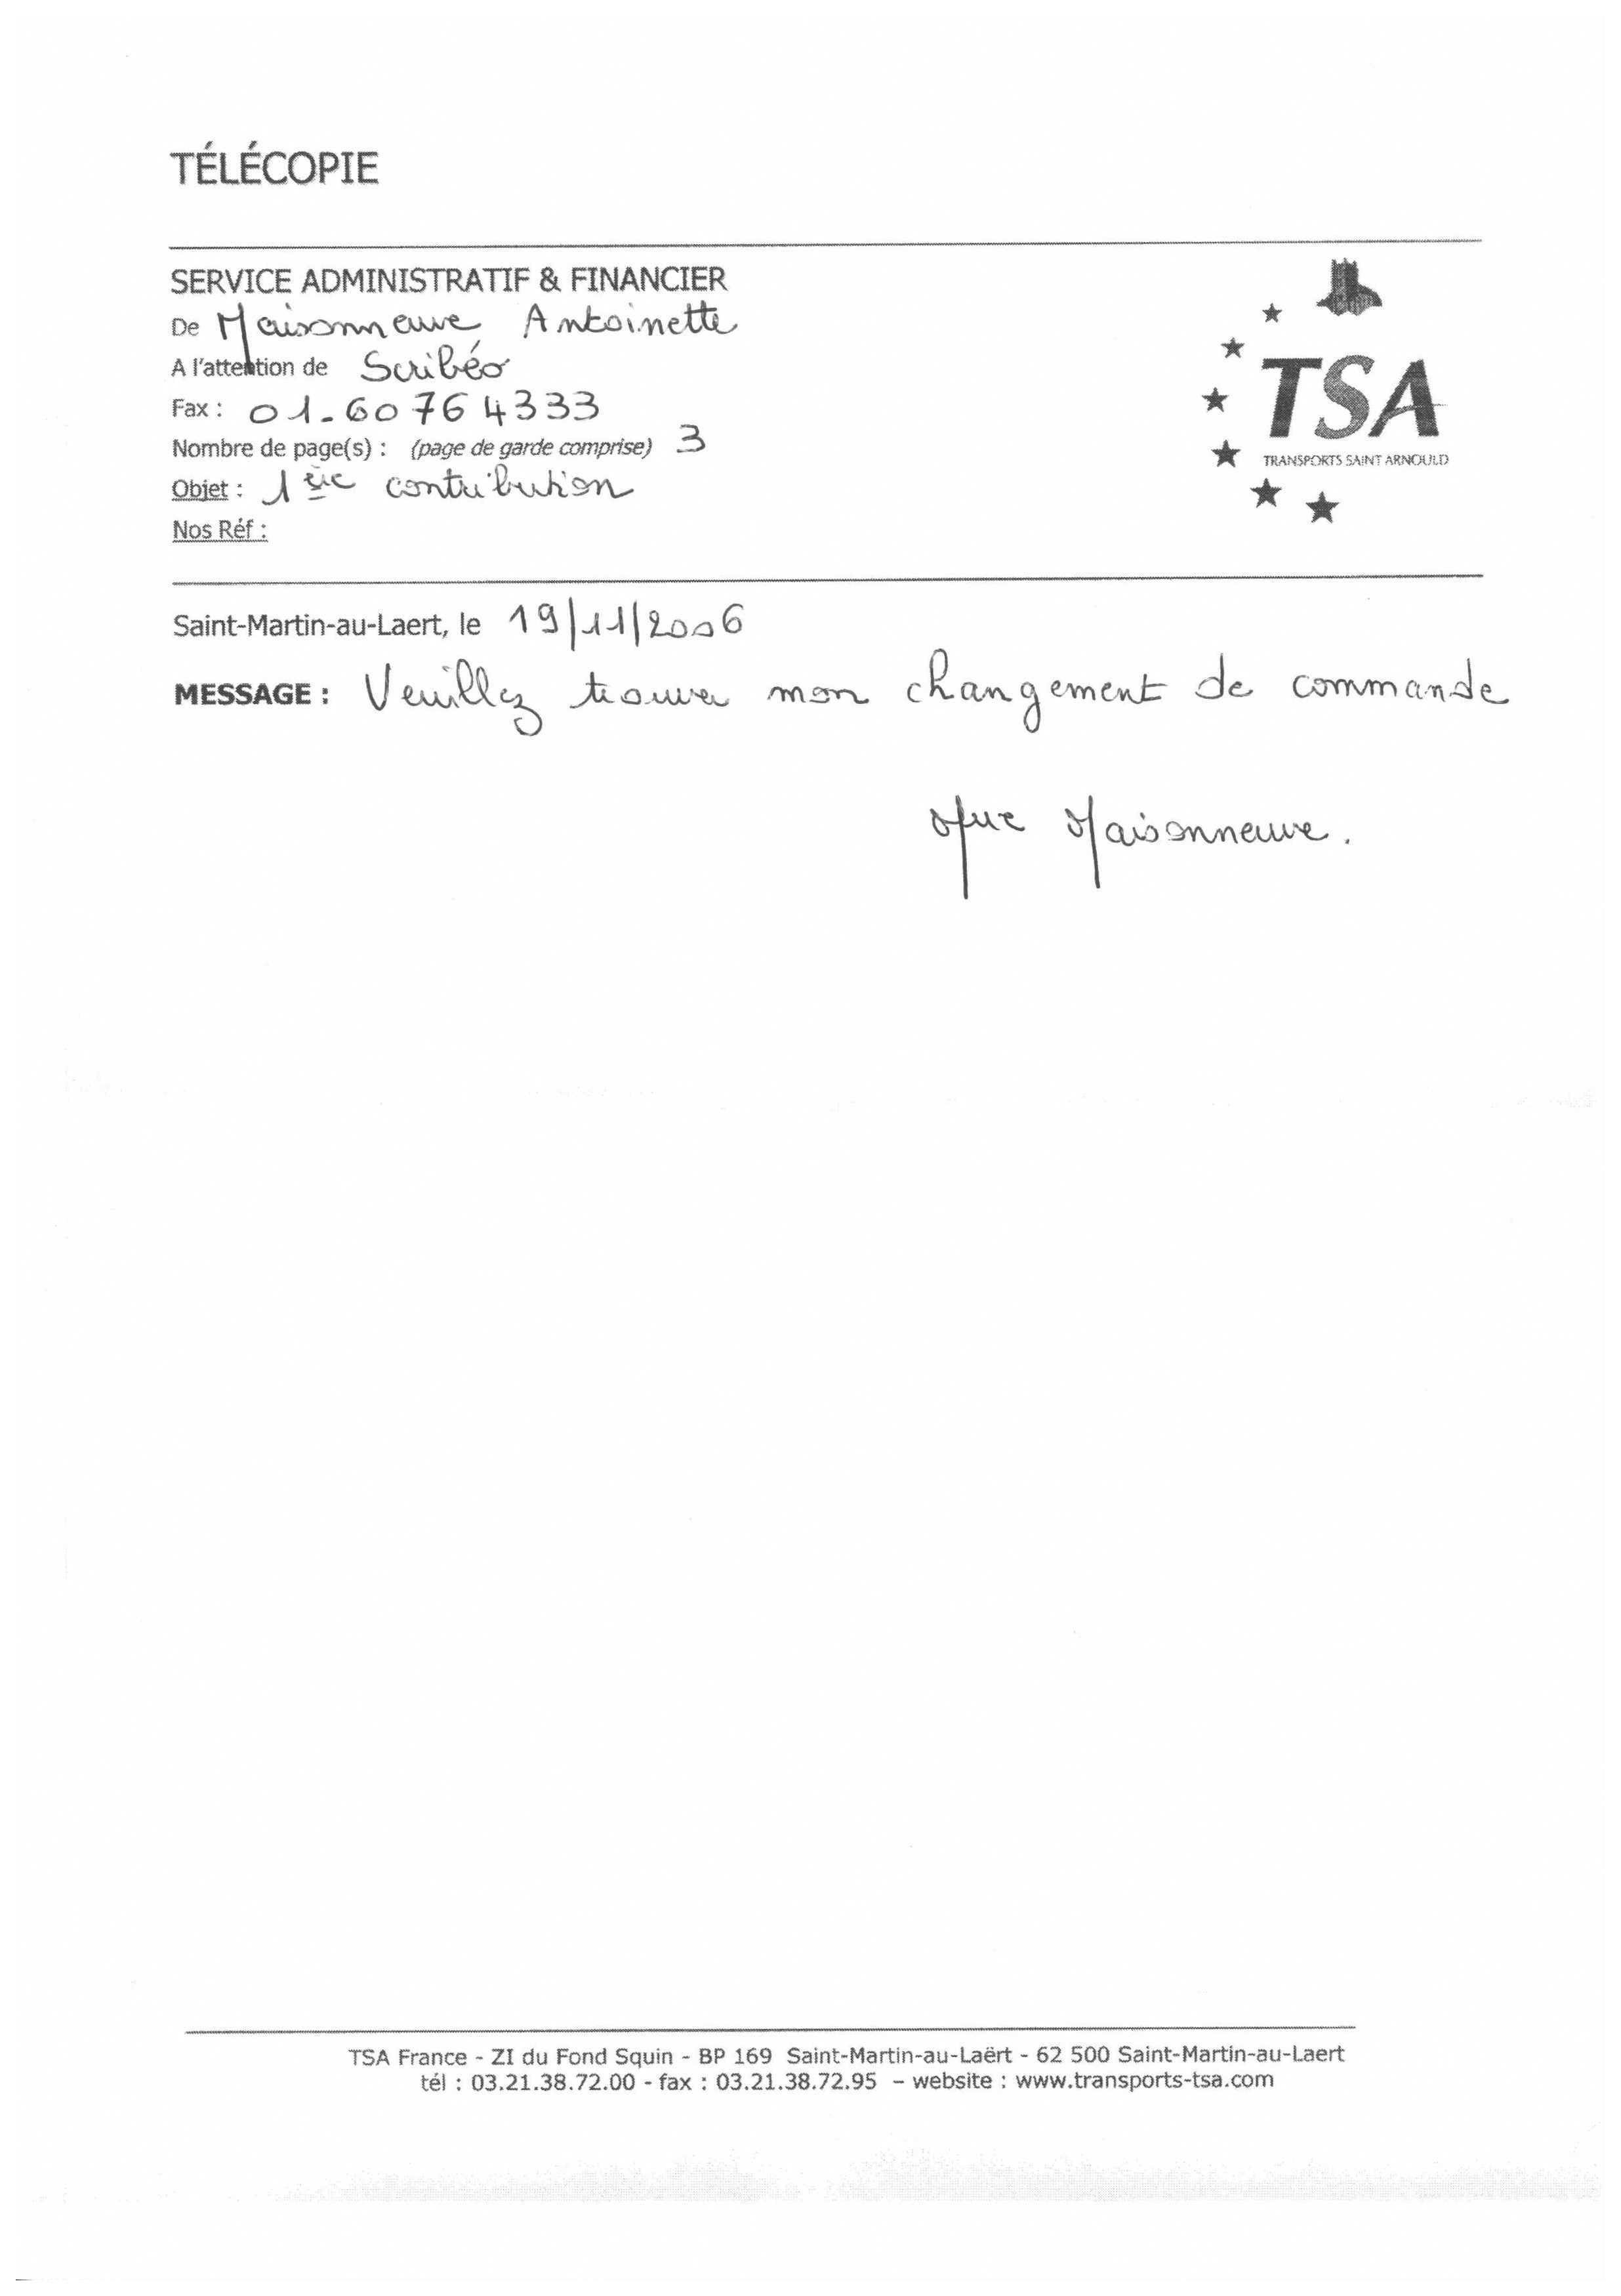 TÉLÉCOPIE
SERVICE ADMINISTRATIF & FINANCIER
De Maisonneuve Antoinette
A l'attention de Scribéo
Fax : 01.60 76 4333
Nombre de page(s) : (page de garde comprise) 3
Objet : 1ère contribution
Nos Réf :
TSA
TRANSPORTS SAINT ARNOULD
Saint-Martin-au-Laert, le 19/11/2006
MESSAGE : Veuillez trouver mon changement de commande
Mme Maisonneuve.
TSA France - ZI du Fond Squin - BP 169 Saint-Martin-au-Laërt - 62 500 Saint-Martin-au-Laert
tél : 03.21.38.72.00 - fax : 03.21.38.72.95 – website : www.transports-tsa.com